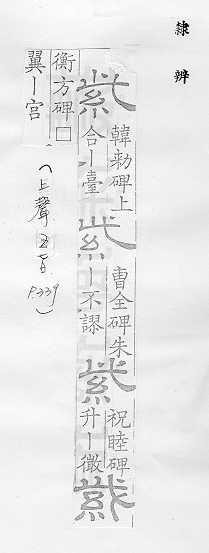 隸辨
紫
韓勑碑上
合丨臺
紫
曹全碑朱
丨不謬
紫
祝睦碑
升丨微
紫
衡方碑□
翼丨宮
(上聲 P.339)